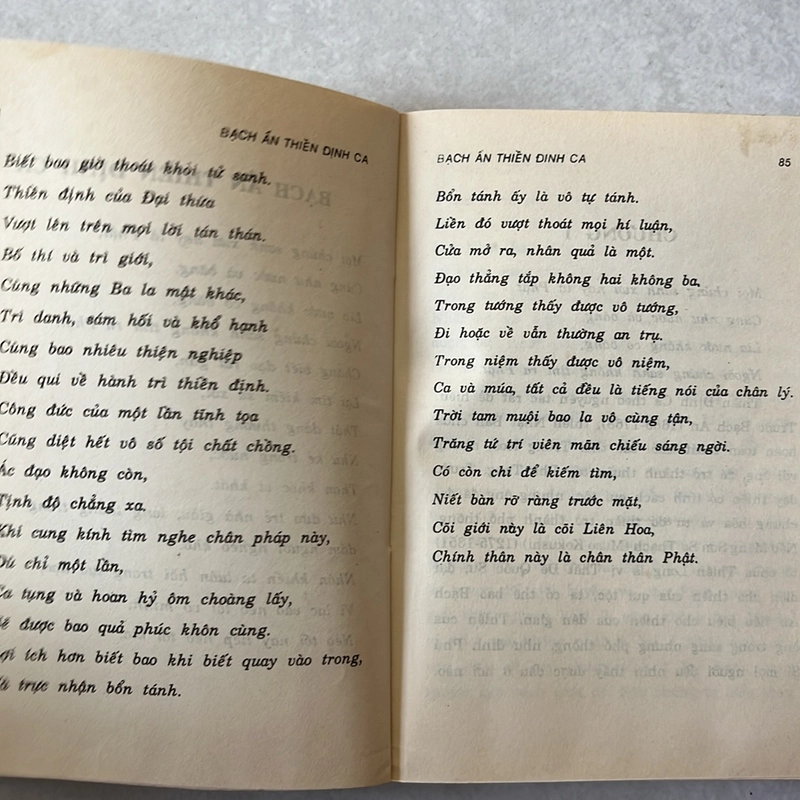 BẠCH ẨN THIỀN ĐỊNH CA
Biết bao giờ thoát khỏi tử sanh.
Thiền định của Đại thừa
Vượt lên trên mọi lời tán thán.
Bố thí và trì giới,
Cùng những Ba la mật khác,
Trì danh, sám hối và khổ hạnh
Cùng bao nhiêu thiện nghiệp
Đều qui về hành trì thiền định.
Công đức của một lần tĩnh tọa
Cũng diệt hết vô số tội chất chồng.
Ác đạo không còn,
Tịnh độ chẳng xa.
Khi cung kính tìm nghe chân pháp này,
Dù chỉ một lần,
Ca tụng và hoan hỷ ôm choàng lấy,
Sẽ được bao quả phúc khôn cùng.
Lợi ích hơn biết bao khi biết quay vào trong,
Và trực nhận bổn tánh.
BẠCH ẨN THIỀN ĐỊNH CA 85
Bổn tánh ấy là vô tự tánh.
Liền đó vượt thoát mọi hí luận,
Cửa mở ra, nhân quả là một.
Đạo thẳng tắp không hai không ba.
Trong tướng thấy được vô tướng,
Đi hoặc về vẫn thường an trụ.
Trong niệm thấy được vô niệm,
Ca và múa, tất cả đều là tiếng nói của chân lý.
Trời tam muội bao la vô cùng tận,
Trăng tứ trí viên mãn chiếu sáng ngời.
Có còn chi để kiếm tìm,
Niết bàn rỡ ràng trước mặt,
Cõi giới này là cõi Liên Hoa,
Chính thân này là chân thân Phật.